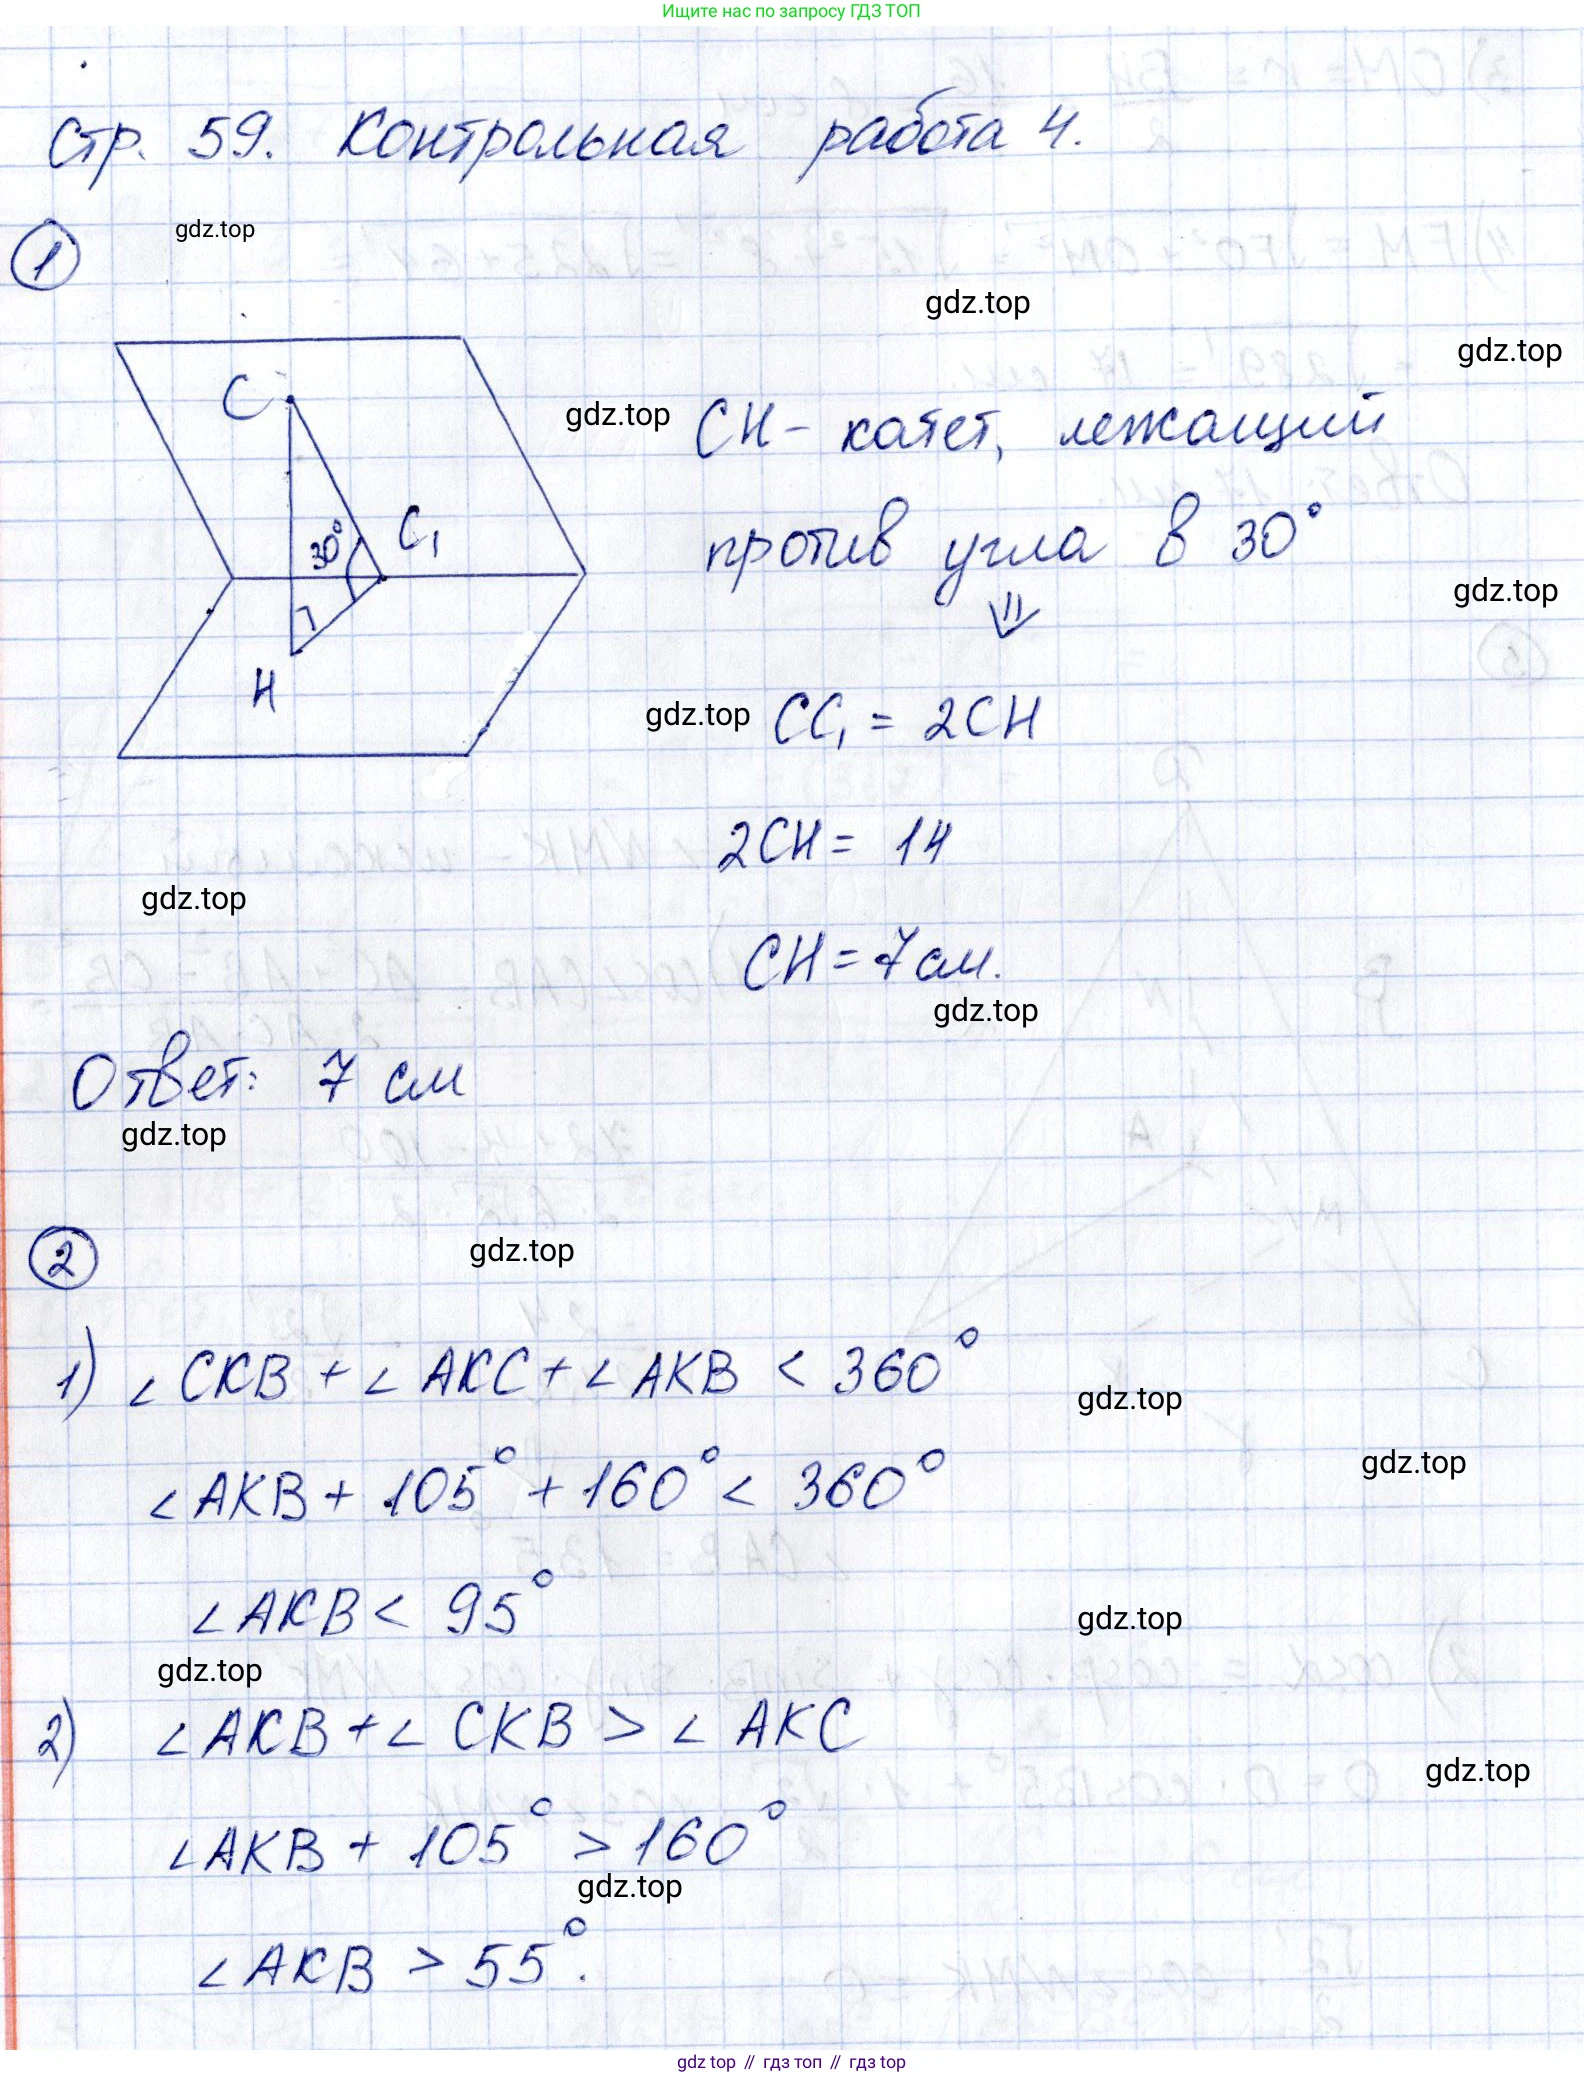 Ищите нас по запросу ГДЗ ТОП
Стр. 59. Контрольная работа 4.
1
gdz.top
gdz.top
gdz.top
C
gdz.top
CH - катет, лежащий
30°
C₁
против угла в 30°
gdz.top
⇓
H
gdz.top
CC₁ = 2CH
2CH = 14
gdz.top
CH = 7 см.
gdz.top
Ответ: 7 см
gdz.top
2
gdz.top
1) ∠CKB + ∠AKC + ∠AKB < 360°
gdz.top
gdz.top
∠AKB + 105° + 160° < 360°
∠AKB < 95°
gdz.top
gdz.top
2) ∠AKB + ∠CKB > ∠AKC
gdz.top
∠AKB + 105° > 160°
gdz.top
∠AKB > 55°.
gdz top // гдз топ // гдз top